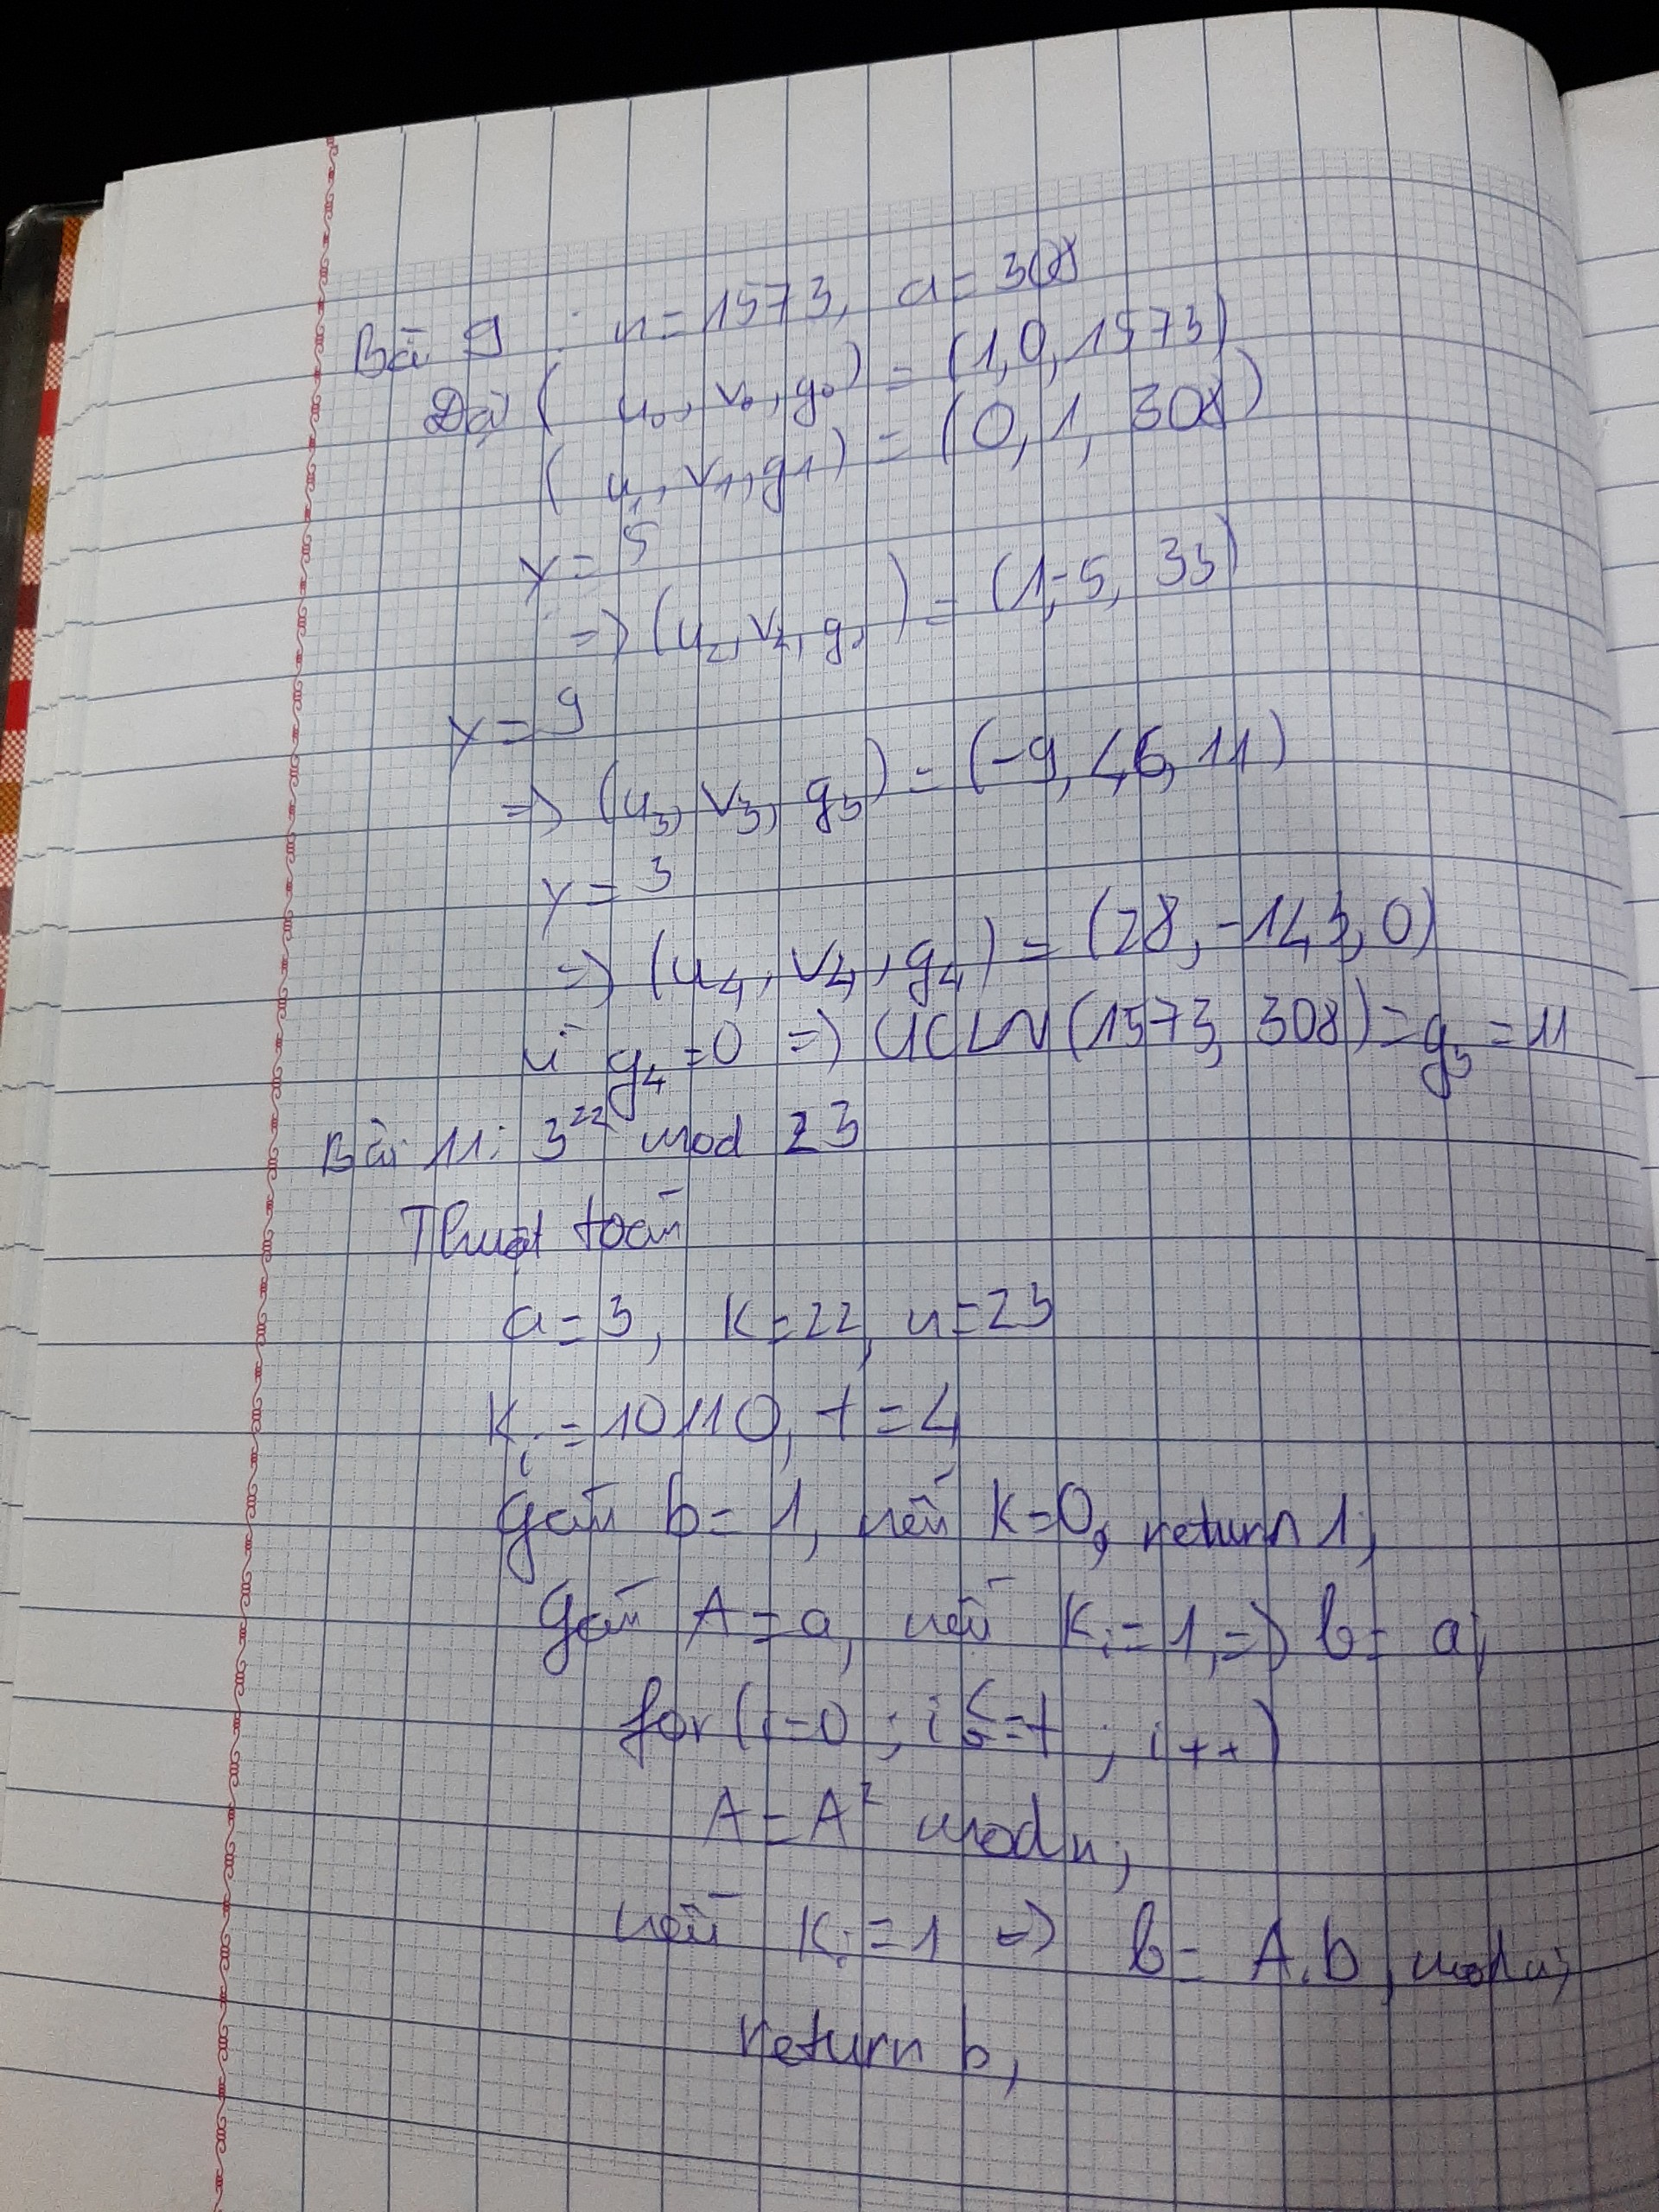 Bài 9 : n=1573, a=308
Đặt (u₀, v₀, g₀) = (1,0,1573)
(u₁, v₁, g₁) = (0, 1, 308)
y = 5
=> (u₂, v₂, g₂) = (1,-5, 33)
y = 9
=> (u₃, v₃, g₃) = (-9, 46, 11)
y = 3
=> (u₄, v₄, g₄) = (28, -143, 0)
vì g₄ = 0 => UCLN(1573, 308) = g₃ = 11
Bài 11: 3²² mod 23
Thuật toán
a=3, K=22, n=23
Kᵢ = 10110, t = 4
gán b= 1, nếu K=0, return 1;
gán A=a, nếu Kᵢ=1, => b= a;
for (i=0 ; i <=t ; i++)
A = A² mod n;
nếu Kᵢ=1 => b= A.b, mod n;
return b,